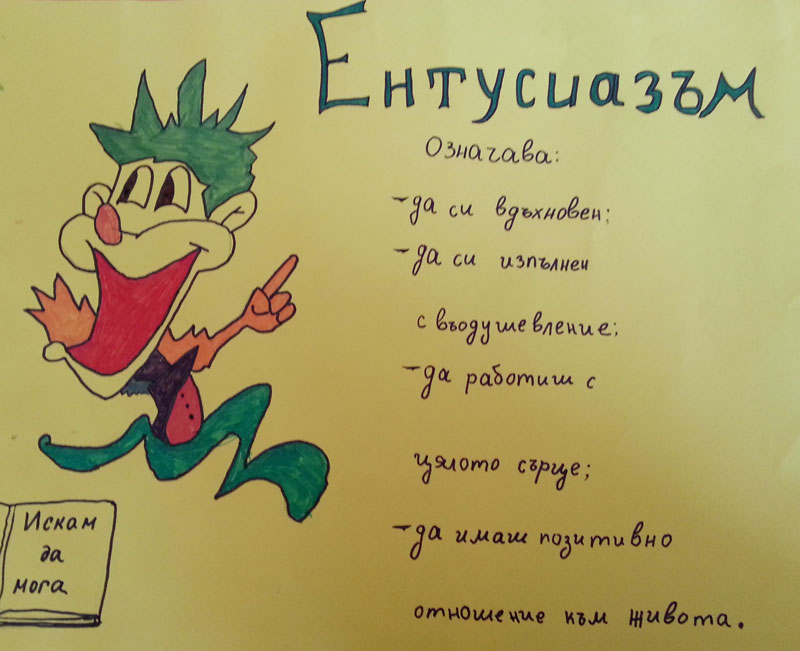 Ентусиазъм
Означава:
- да си вдъхновен;
- да си изпълнен
с въодушевление;
- да работиш с
цялото сърце;
- да имаш позитивно
отношение към живота.
Искам
да
мога